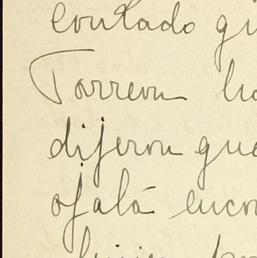 contado qu
Torreon ha
dijeron que
ojalá encon